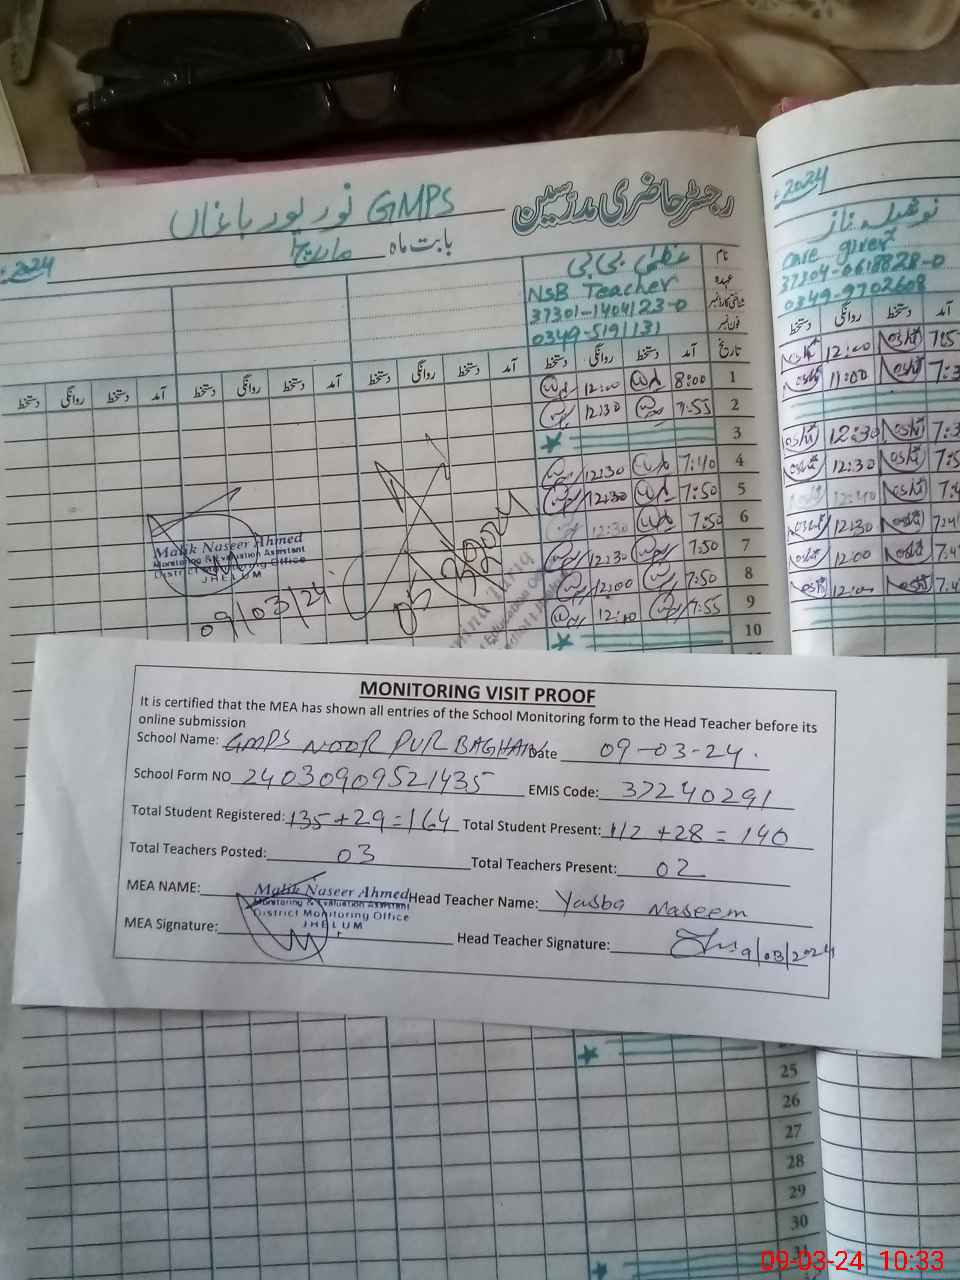 رجسٹر حاضری مدرسین
GMPS نور پور باغاں
بابت ماہ مارچ
2024
نام
عظمیٰ بی بی
عہدہ NSB Teacher
شناختی کارڈ نمبر 37301-1404123-0
فون نمبر 0349-5191131
تاریخ آمد دستخط روانگی دستخط آمد دستخط روانگی دستخط آمد دستخط روانگی دستخط
1 8:00 12:00
2 7:55 12:30
3
4 7:40 12:30
5 7:50 12:30
6 7:50 12:30
7 7:50 12:30
8 7:50 12:00
9 7:55 12:10
10
Malik Naseer Ahmed
Monitoring & Evaluation Assistant
District Monitoring Office
JHELUM
09/03/24
2024
نوشیلہ ناز
care giver
37304-0618828-0
0349-9702608
آمد دستخط روانگی دستخط
Noshi 12:00 Noshi
Noshi 11:00 Noshi
Noshi 12:30 Noshi
Noshi 12:30 Noshi
Noshi 12:40 Noshi
Noshi 12:30 Noshi
Noshi 12:00 Noshi
Noshi 12:00 Noshi
MONITORING VISIT PROOF
It is certified that the MEA has shown all entries of the School Monitoring form to the Head Teacher before its
online submission
School Name: GMPS NOOR PUR BAGHAN Date 09-03-24.
School Form NO 24030909521435 EMIS Code: 37240291
Total Student Registered: 135+29=164 Total Student Present: 112+28=140
Total Teachers Posted: 03 Total Teachers Present: 02
MEA NAME: Malik Naseer Ahmed Head Teacher Name: Yasba Naseem
Monitoring & Evaluation Assistant
District Monitoring Office
JHELUM
MEA Signature: Head Teacher Signature: 9/03/2024
25
26
27
28
29
30
31
09-03-24 10:33